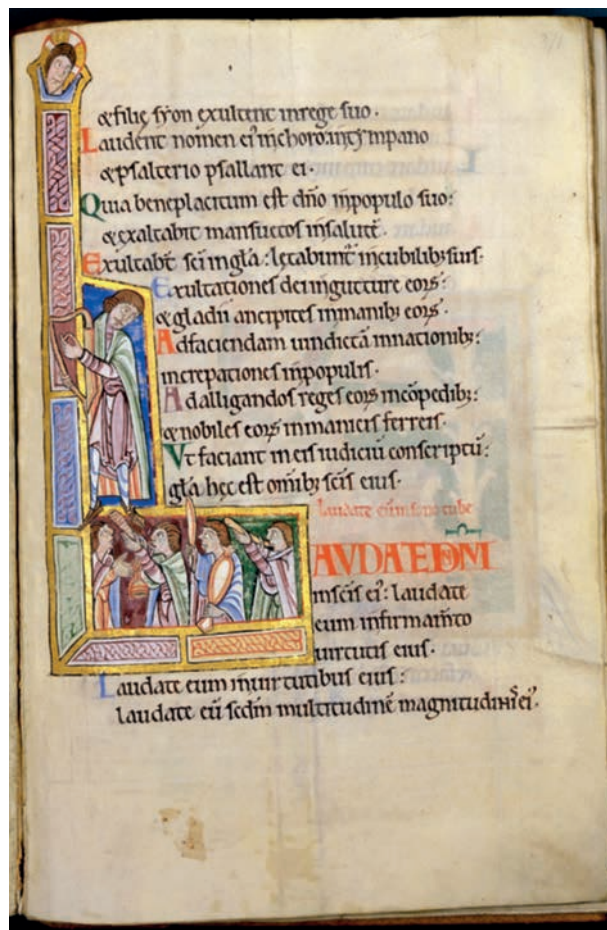 &filię syon exultent inrege suo·
Laudent nomen ei' inchoro: intympano
&psalterio psallant ei·
Quia beneplacitum est dño inpopulo suo:
&exaltabit mansuetos insalutē·
Exultabt̄ sc̄i ingłā: lętabunt̄ incubilib; suis·
Exultationes dei ingutture eorꝫ:
&gladii ancipites inmanib; eorꝫ·
Adfaciendam uindictā innationib;:
increpationes inpopulis·
Adalligandos reges eorꝫ incōpedib;:
&nobiles eorꝫ inmanicis ferreis·
Vt faciant in eis iudiciū conscriptū:
głā hęc est omīb; sc̄is eius·
laudate eum in sono tube
LAVDATE DN̄M
insc̄is ei': laudate
eum infirmam̄to
uirtutis eius·
Laudate eum inuirtutibus eius:
laudate eū sc̄dm multitudinē magnitudinis ei'·